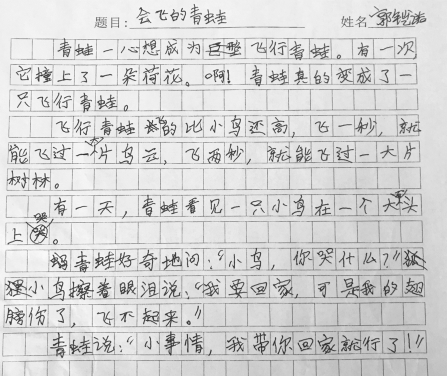 题目：会飞的青蛙 姓名
青蛙一心想成为飞行青蛙。有一次，
它撞上了一朵荷花。啊！青蛙真的变成了一
只飞行青蛙。
飞行青蛙飞的比小鸟还高，飞一秒，就
能飞过一大片乌云，飞两秒，就能飞过一大片
树林。
有一天，青蛙看见一只小鸟在一个大石头
上哭。
青蛙好奇地问：“小鸟，你哭什么？”
小鸟擦着眼泪说：“我要回家，可是我的翅
膀伤了，飞不起来。”
青蛙说：“小事情，我带你回家就行了！”